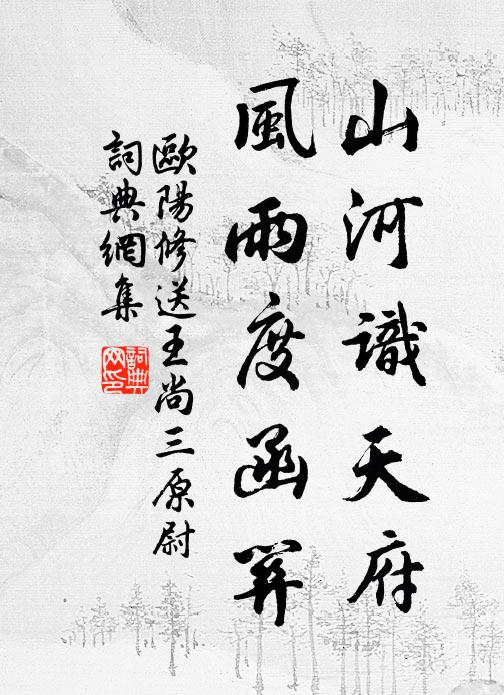 山河識天府
風雨度函關
歐陽修送王尚三原尉
詞典網集
詞典网印